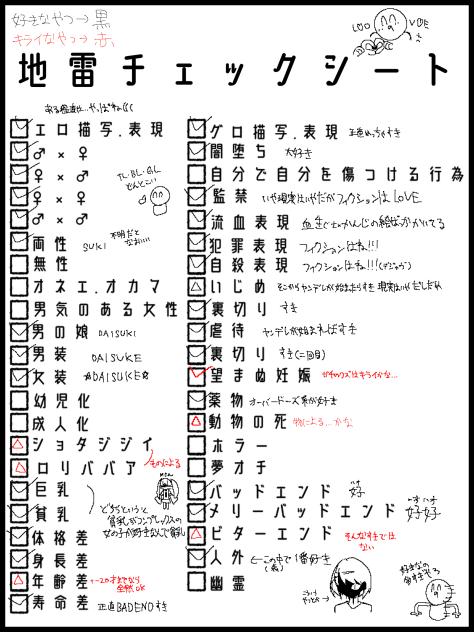 好きなやつ→黒
キライなやつ→赤
LOVE
地雷チェックシート
エロ描写.表現
♂×♀
♂×♀
♀×♀
♂×♂
両性 SUKI
無性
オネエ.オカマ
男気のある女性
男の娘 DAISUKI
男装 DAISUKE
女装 ☆DAISUKE☆
幼児化
成人化
ショタジジイ
ロリババア ものによる
巨乳
貧乳
どちらというと
貧乳がコンプレックスの
女の子が好きなんで貧乳
体格差
身長差
年齢差
寿命差 正直BADENDすき
グロ描写.表現
闇堕ち 大好き
自分で自分を傷つける行為
監禁 いや現実はいやだがフィクションはLOVE
流血表現
犯罪表現 フィクションはね!!!
自殺表現 フィクションはね!!!
いじめ
裏切り すき
虐待 ヤンデレが始まればすき
裏切り すき(二回目)
望まぬ妊娠
薬物 オーバードーズ系が好き
動物の死 物による…かな
ホラー
夢オチ
バッドエンド 好
メリーバッドエンド 好好
ビターエンド そんなすきでは
ない
人外 ←この中で1番好き
幽霊